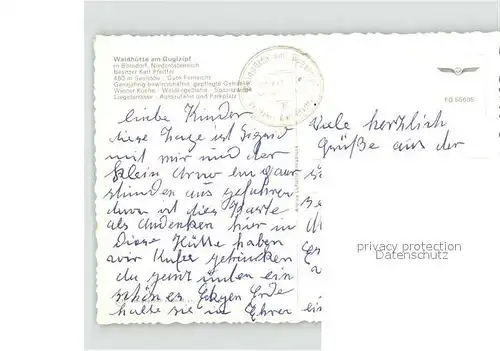 Waldhütte am Guglzipf
in Berndorf, Niederösterreich
Besitzer Karl Pfeiffer
480 m Seehöhe · Gute Fernsicht
Ganzjährig bewirtschaftet, gepflegte Getränke
Wiener Küche · Waldkegelbahn
Liegeterrasse · Autozufahrt und Parkplatz
FO 55605
Liebe Kinder
diese Tage ist
mit mir und der
klein Arno ein paar
Stunden aus gefahren
dann ist diese Karte
als Andenken hier in
Diese Hütte haben
wir Kafee getrunken
da ganz unten ein
schönes
halte sie in Ehren
Viele herzlich
Grüße aus der
privacy protection
Datenschutz